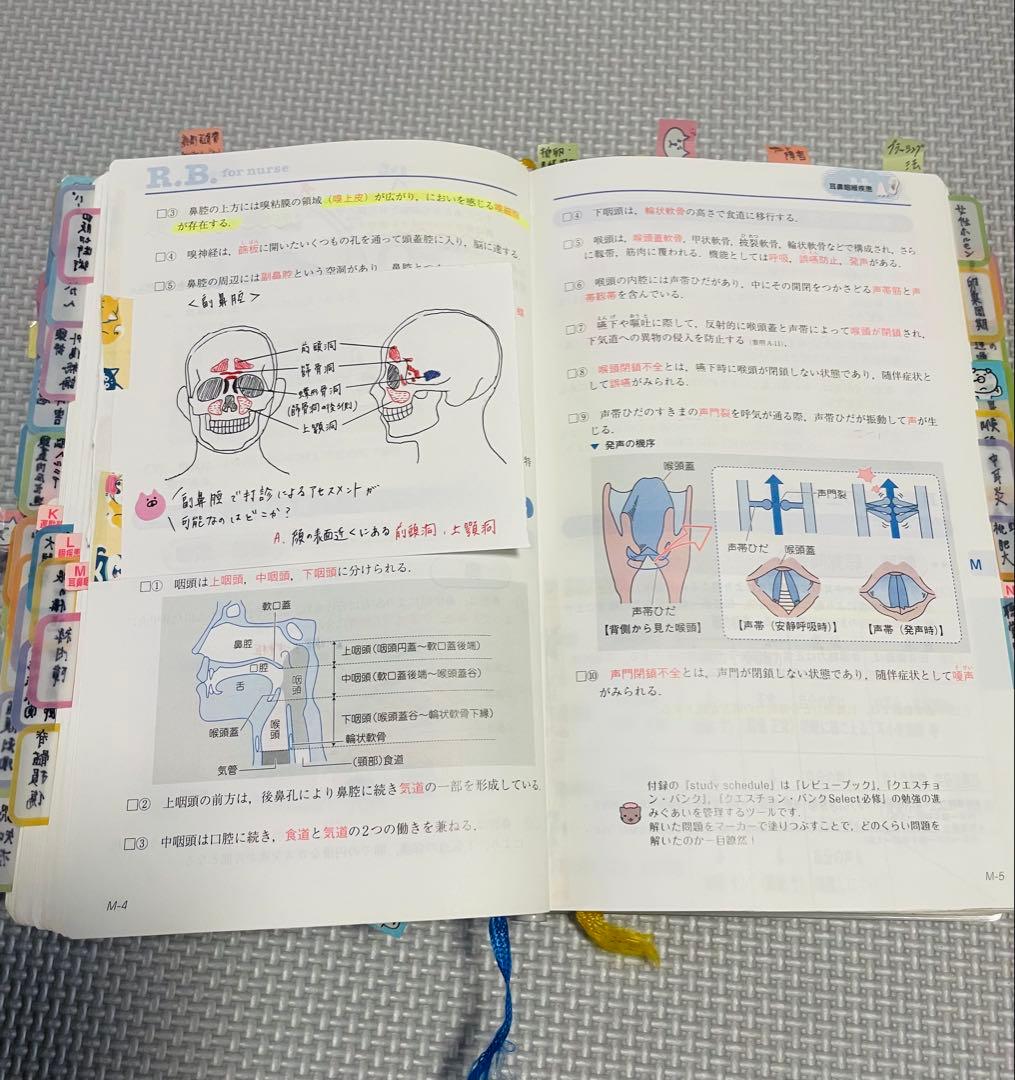 R.B. for nurse
□③ 鼻腔の上方には嗅粘膜の領域（嗅上皮）が広がり，においを感じる
が存在する．
□④ 嗅神経は，篩板に開いたいくつもの孔を通って頭蓋腔に入り，脳に達する．
□⑤ 鼻腔の周辺には副鼻腔という空洞があり，
＜副鼻腔＞
前頭洞
篩骨洞
蝶形骨洞
(篩骨洞の後ろ側)
上顎洞
副鼻腔で打診によるアセスメントが
可能なのはどこか？
A. 顔の表面近くにある前頭洞，上顎洞
□① 咽頭は上咽頭，中咽頭，下咽頭に分けられる．
軟口蓋
鼻腔
口腔
舌
咽頭
喉頭
喉頭蓋
気管
(頸部)食道
上咽頭（咽頭円蓋〜軟口蓋後端）
中咽頭（軟口蓋後端〜喉頭蓋谷）
下咽頭（喉頭蓋谷〜輪状軟骨下縁）
輪状軟骨
□② 上咽頭の前方は，後鼻孔により鼻腔に続き気道の一部を形成している．
□③ 中咽頭は口腔に続き，食道と気道の2つの働きを兼ねる．
M-4
耳鼻咽喉疾患
□④ 下咽頭は，輪状軟骨の高さで食道に移行する．
□⑤ 喉頭は，喉頭蓋軟骨，甲状軟骨，披裂軟骨，輪状軟骨などで構成され，さら
に靱帯，筋肉に覆われる．機能としては呼吸，誤嚥防止，発声がある．
□⑥ 喉頭の内腔には声帯ひだがあり，中にその開閉をつかさどる声帯筋と声
帯靱帯を含んでいる．
□⑦ 嚥下や嘔吐に際して，反射的に喉頭蓋と声帯によって喉頭が閉鎖され，
下気道への異物の侵入を防止する（参照A-11）．
□⑧ 喉頭閉鎖不全とは，嚥下時に喉頭が閉鎖しない状態であり，随伴症状と
して誤嚥がみられる．
□⑨ 声帯ひだのすきまの声門裂を呼気が通る際，声帯ひだが振動して声が生
じる．
▼ 発声の機序
喉頭蓋
声門裂
声帯ひだ
喉頭蓋
声帯ひだ
【背側から見た喉頭】
【声帯（安静呼吸時）】
【声帯（発声時）】
□⑩ 声門閉鎖不全とは，声門が閉鎖しない状態であり，随伴症状として嗄声
がみられる．
付録の『study schedule』は『レビューブック』，『クエスチョ
ン・バンク』，『クエスチョン・バンクSelect必修』の勉強の進
みぐあいを管理するツールです．
解いた問題をマーカーで塗りつぶすことで，どのくらい問題を
解いたのか一目瞭然！
M-5
M
K
L
眼疾患
M